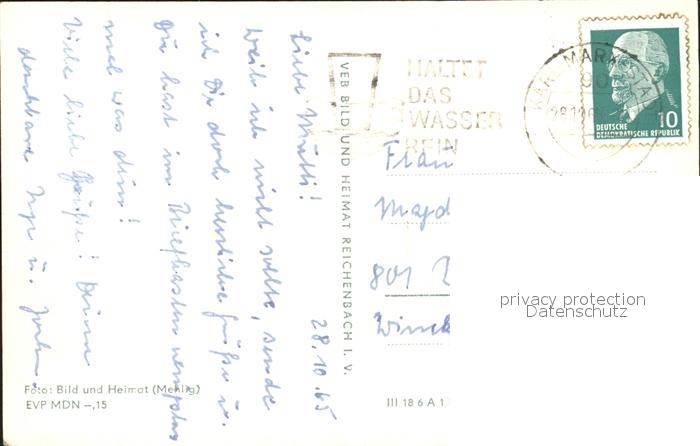 28.10.65
Liebe Mutti!
Weil ich nicht sollte, sende
ich Dir doch herzliche Grüße u.
Du hast im Briefkasten
mal was drin!
Viele liebe Grüße! Deine
dankbare Inge u.
Foto: Bild und Heimat (Mehlig)
EVP MDN –,15
VEB BILD UND HEIMAT REICHENBACH I. V.
HALTET
DAS
WASSER
REIN
KARL-MARX-STA
DEUTSCHE
DEMOKRATISCHE REPUBLIK
10
Frau
Magd
801
III 18 6 A 1
privacy protection
Datenschutz